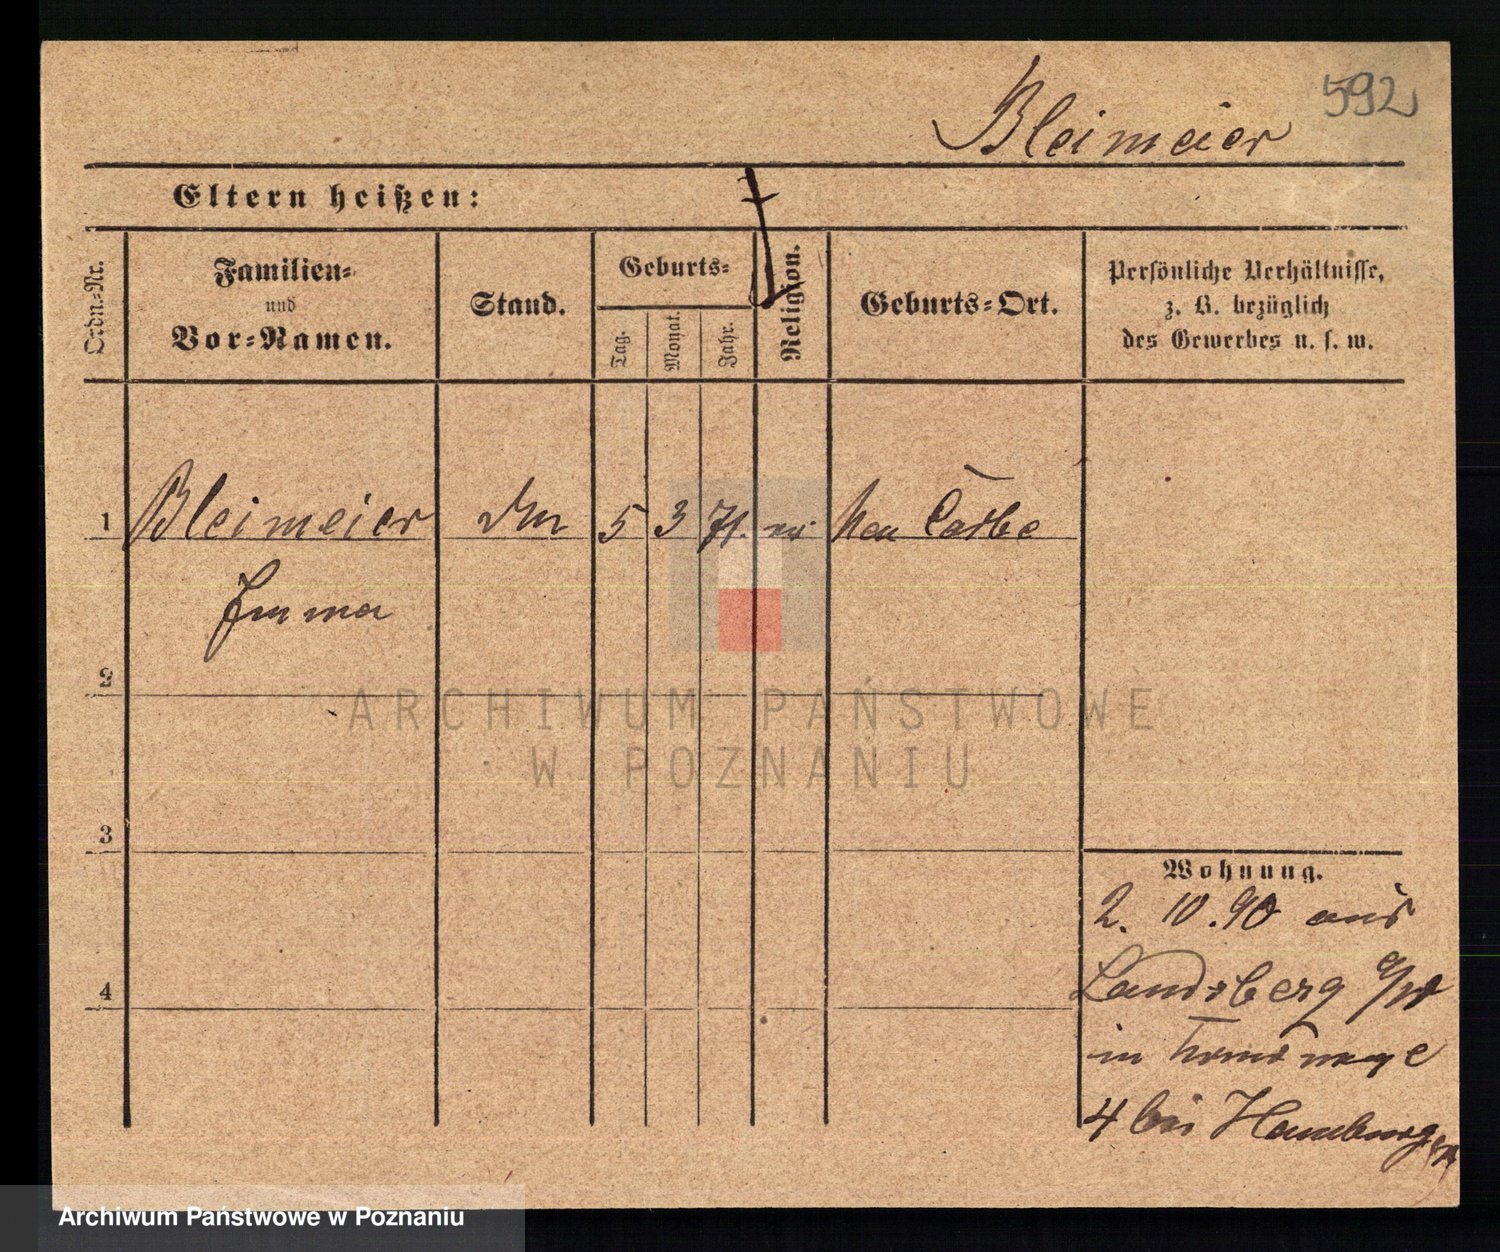 592
Bleimeier
Eltern heißen:
Ordn=Nr.
Familien=
und
Vor=Namen.
Stand.
Geburts=
Tag.
Monat.
Jahr.
Religion.
Geburts=Ort.
Persönliche Verhältnisse,
z. B. bezüglich
des Gewerbes u. s. w.
1 Bleimeier 5 3 71. Neu
Emma
2
3
4
Wohnung.
2. 10. 90 aus
Landsberg a/W
in
4 bei Hamburger
ARCHIWUM PAŃSTWOWE
W POZNANIU
Archiwum Państwowe w Poznaniu